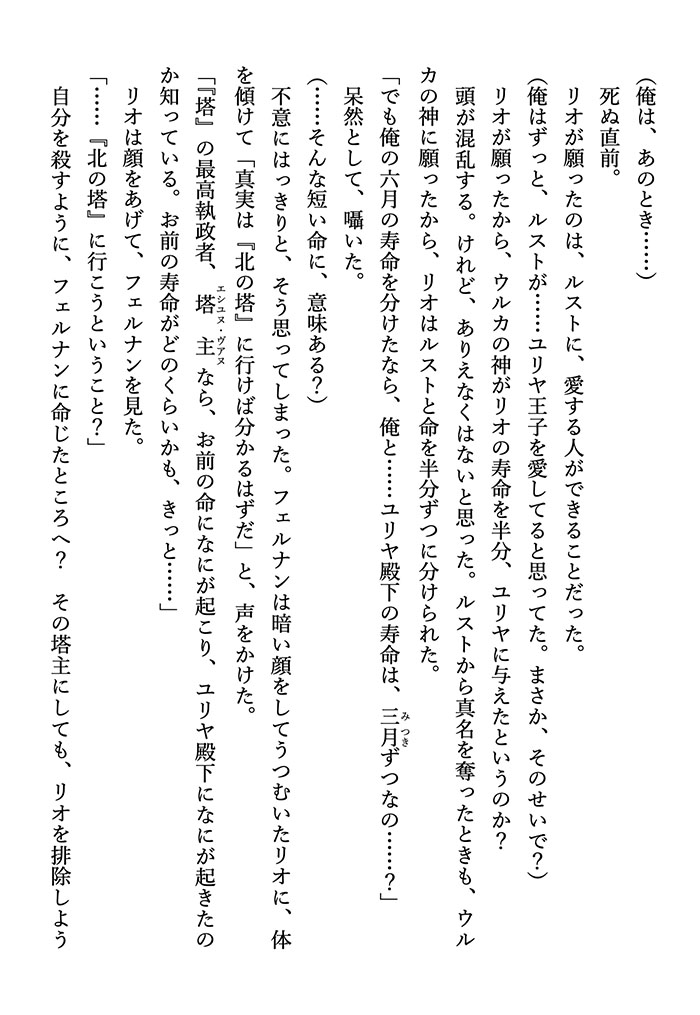 （俺は、あのとき……）
死ぬ直前。
リオが願ったのは、ルストに、愛する人ができることだった。
（俺はずっと、ルストが……ユリヤ王子を愛してると思ってた。まさか、そのせいで？）
リオが願ったから、ウルカの神がリオの寿命を半分、ユリヤに与えたというのか？
頭が混乱する。けれど、ありえなくはないと思った。ルストから真名を奪ったときも、ウル
カの神に願ったから、リオはルストと命を半分ずつに分けられた。
「でも俺の六月の寿命を分けたなら、俺と……ユリヤ殿下の寿命は、三月ずつなの……？」
みつき
呆然として、囁いた。
（……そんな短い命に、意味ある？）
不意にはっきりと、そう思ってしまった。フェルナンは暗い顔をしてうつむいたリオに、体
を傾けて「真実は『北の塔』に行けば分かるはずだ」と、声をかけた。
「『塔』の最高執政者、塔主なら、お前の命になにが起こり、ユリヤ殿下になにが起きたの
エシユヌ・ヴアヌ
か知っている。お前の寿命がどのくらいかも、きっと……」
リオは顔をあげて、フェルナンを見た。
「……『北の塔』に行こうということ？」
自分を殺すように、フェルナンに命じたところへ？　その塔主にしても、リオを排除しよう